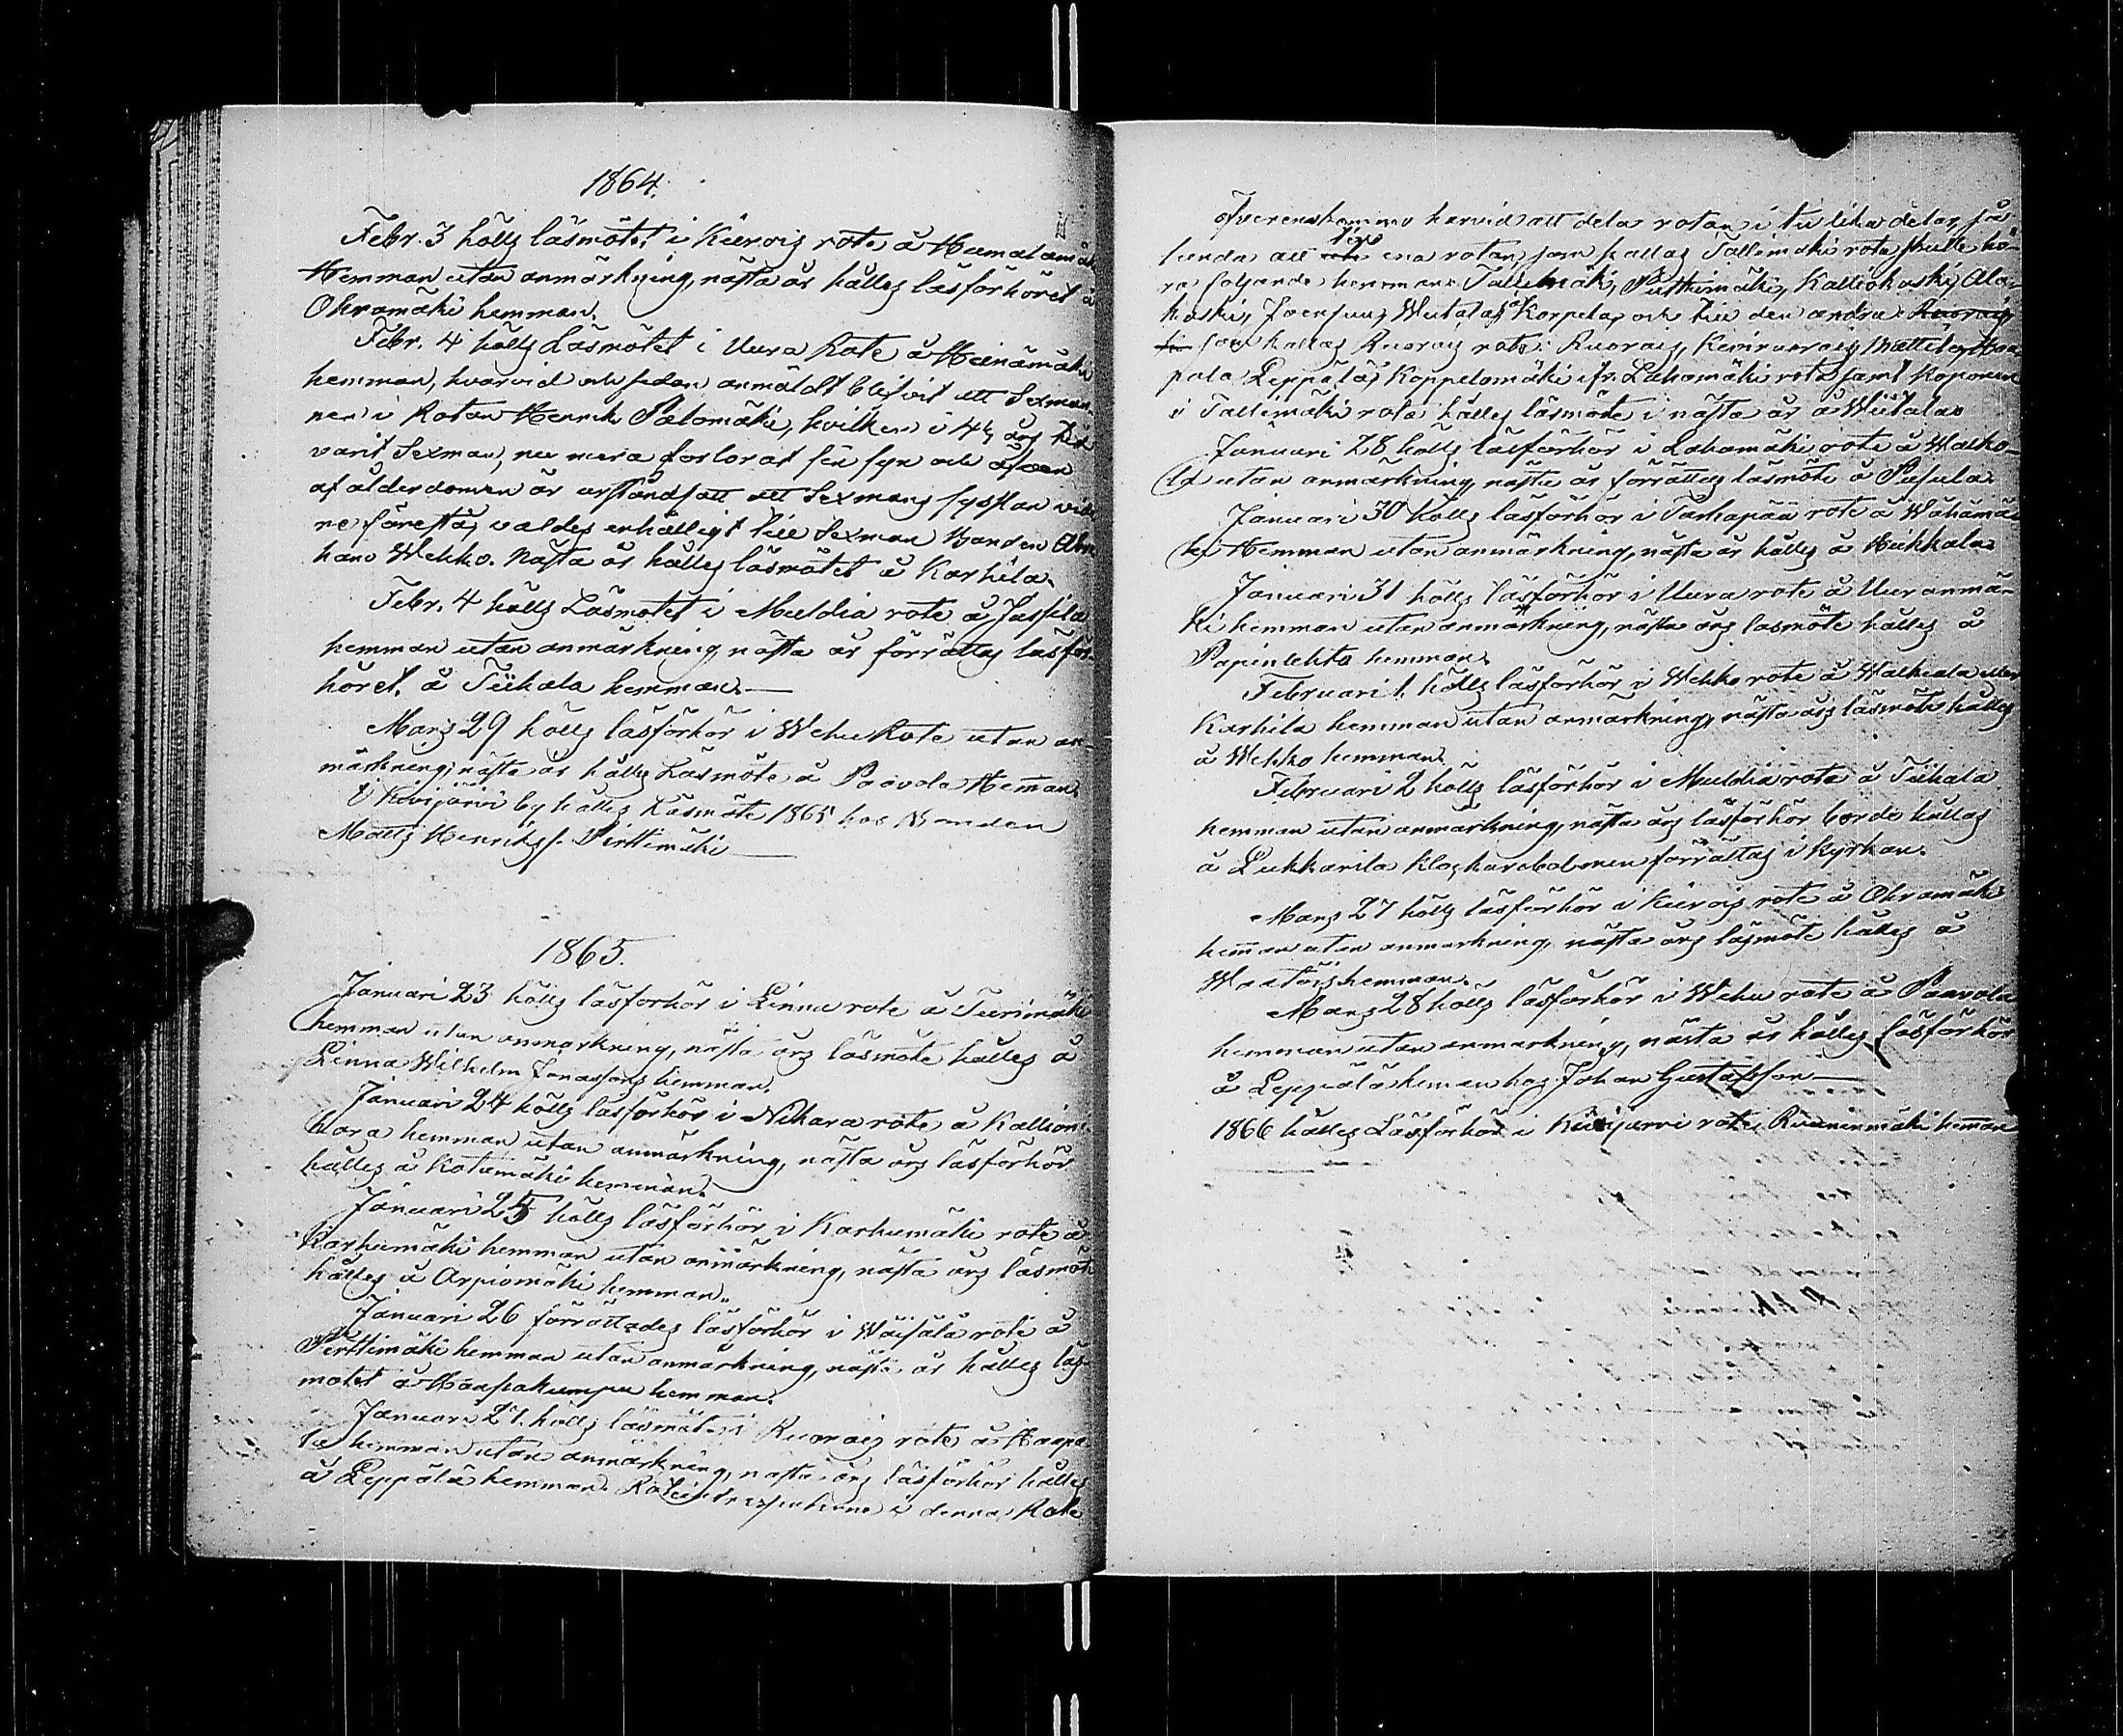 1864.
Febr. 3 hölls läsmötet i Kiiwois rote å Hamalamäki
Hemman utan anmärkning, nästa år hålles läsförhöret å
Ohramäki hemman.
Febr. 4 hölls Läsmötet i Uura Rote å Heinämäki
hemman, hvarvid och sedan anmäldt blifvit att Sexman
nen i Rotan Henrik Palomäki, hvilken i 42 års tid
varit Sexman, nu mera förlorat sin syn och äfven
af ålderdomen är urståndsatt att Sexmans sysslan vida
re förestå, valdes enhälligt till Sexman Bonden Abra
ham Wehko. Nästa år hålles läsmötet å Karhila.
Febr. 4 hölls Läsmötet i Muldia rote å Jussila
hemman utan anmärkning, nästa år förrättas läsför-
höret å Tiihala hemman.
Mars 29 hölls läsförhör i Wehu Rote utan an-
märkning; nästa år hålles Läsmöte å Paavola Heman.
I Kivijärvi by hålles Läsmöte 1865 hos Bonden
Matts Henrikss. Pirttimäki
1865.
Januari 23 hölls läsförhör i Linna rote å Tuurimäki
hemman utan anmärkning, nästa års läsmöte hålles å
Linna Wilhelm Jonassons hemman.
Januari 24 hölls läsförhör i Nikara rote å Kallion
hemman utan anmärkning, nästa års läsförhör
hålles å Kotamäki hemman.
Januari 25 hölls läsförhör i Karhumäki rote å
Karhumäki hemman utan anmärkning, nästa års läsmöte
hålles å Arpiomäki hemman.
Januari 26 förrättades läsförhör i Wäisälä rote å
Perttimäki hemman utan anmärkning, nästa år hålles läs-
mötet å Haapakumpu hemman.
Januari 27. hölls läsmötet i Ruorais rote å Haapa
la hemman utan anmärkning, nästa års läsförhör hålles
å Leppälä hemman. Roteintressenterne i denna Rote
öfverenskommo härvid att dela rotan i tu lika delar, så
lunda att till ena rotan som kallas Tallimäki rota skulle hö-
ra följande hemman: Tallimäki, Putkimäki, Kalliokoski, Ala-
koski, Joensuu, Wiitala, Korpela, och till den andra Ruorais
som kallas Ruorais rote: Ruorais, Mattila, Haa
pala, Leppälä, Koppelomäki ifr. Lahomäki rota samt Koponen
i Tallimäki rota hålles läsmöte i nästa år å Wiitala
Januari 28 hölls läsförhör i Lahomäki rote å Walko-
la utan anmärkning, nästa år förrättas läsmöte å Pusula.
Januari 30 hölls läsförhör i Tarhapää rote å Wähämä-
ki Hemman utan anmärkning, nästa år hålles å Hiekkala
Januari 31 hölls läsförhör i Uura rote å Uuranmä-
ki hemman utan anmärkning, nästa års läsmöte hålles å
Papinlehto hemman.
Februari 1. hölls läsförhör i Wehko rote å Walkeala eller
Karhila hemman utan anmärkning, nästa års läsmöte hålles
å Wehko hemman.
Februari 2 hölls läsförhör i Muldia rote å Tiihala
hemman utan anmärkning, nästa års läsförhör borde hållas
å Lukkarila Klockarebolmen förrättas i kyrkan.
Mars 27 hölls läsförhör i Kiiwois rote å Ohramäki
heman utan anmärkning, nästa års läsmöte hålles å
hemman.
Mars 28 hölls läsförhör i Wehu rote å Paavola
hemman utan anmärkning, nästa år hålles läsförhör
å Leppälä heman hos Johan Gustafsson
1866 hålles Läsförhör i Kivijärvi rote, Ruuninmäki heman